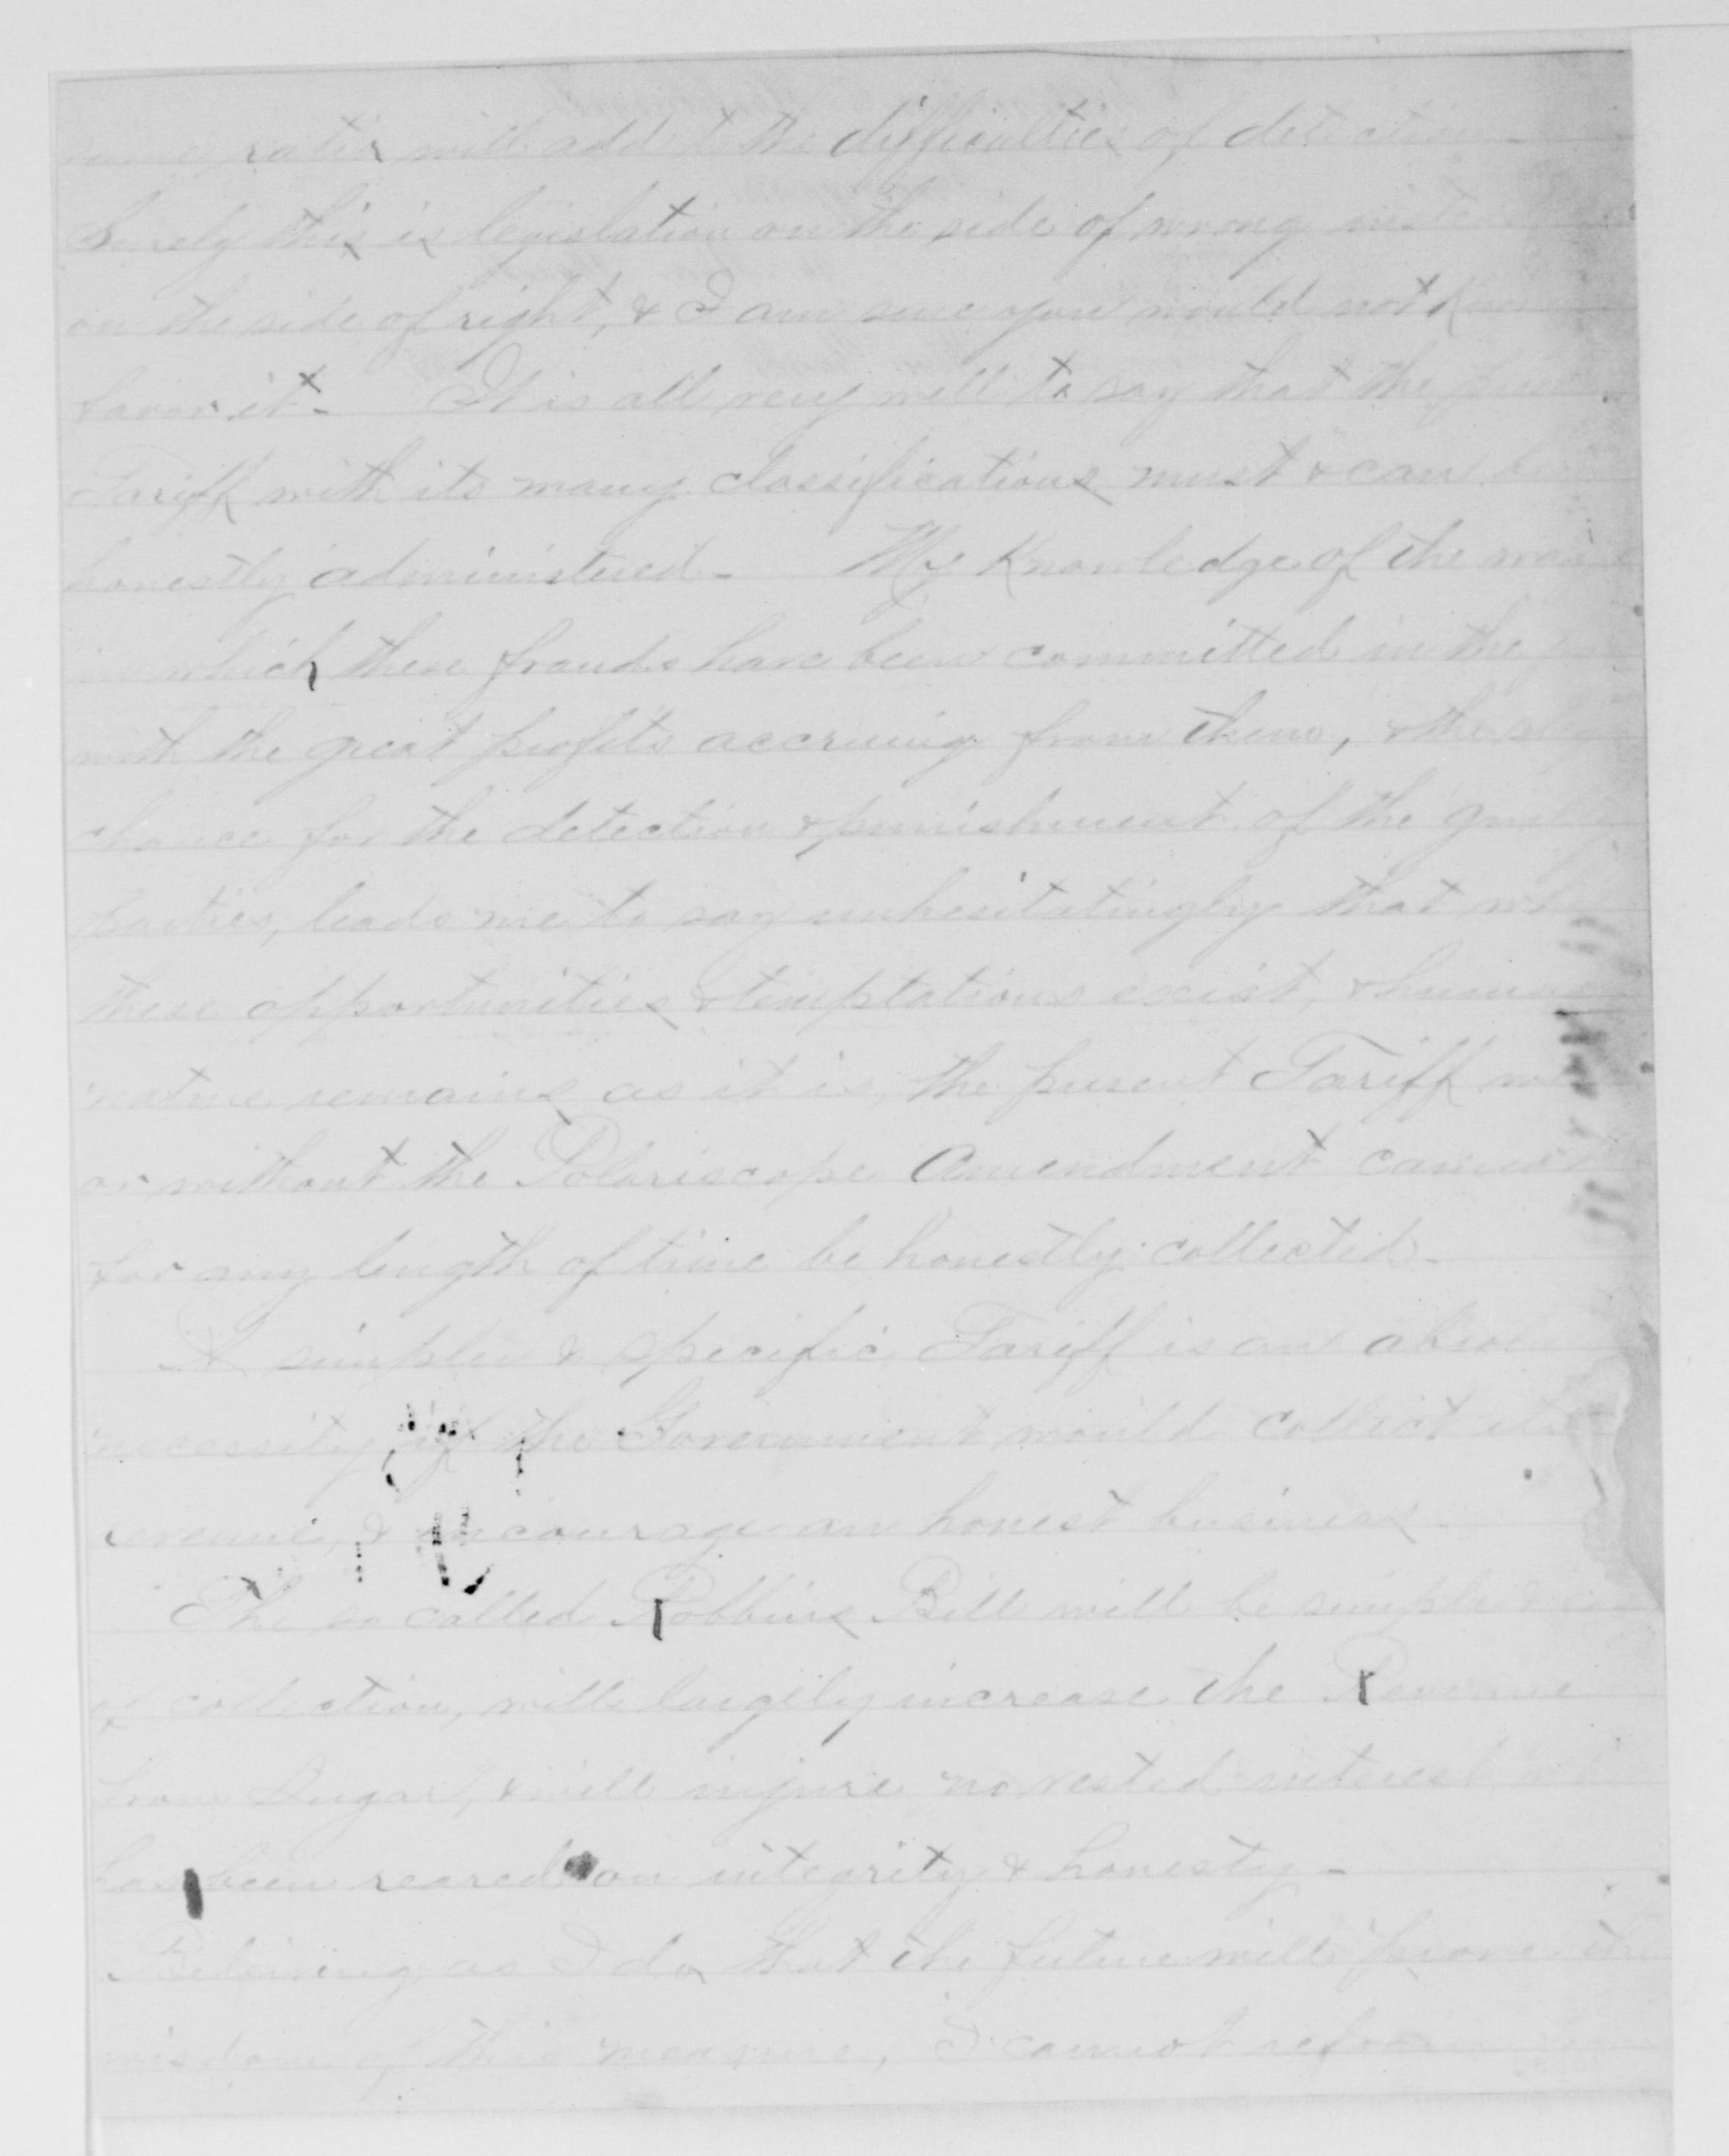 same ratio will add to the difficulties of detection -
Surely this is legislation on the side of wrong instead
on the side of right, & I am sure you would not
favor it - It is all very well to say that the
Tariff with its many classifications must & can be
honestly administered - My Knowledge of the
in which these frauds have been committed in the
with the great profits accruing from them, & the
chance for the detection & punishment of the
parties, leads me to say unhesitatingly that
these opportunities & temptations exist, & human
nature remains as it is, the present Tariff
or without the Polariscope Amendment cannot
for any length of time be honestly collected -
A simple & specific Tariff is an
necessity, if the Government would collect its
revenue, & encourage an honest business -
The so called Robbins Bill will be simple
of collection, will largely increase the Revenue
from Sugar, & will injure no vested interest
has been reared on integrity & honesty -
Beleiving as I do that the future will prove the
wisdom of this measure, I cannot refrain